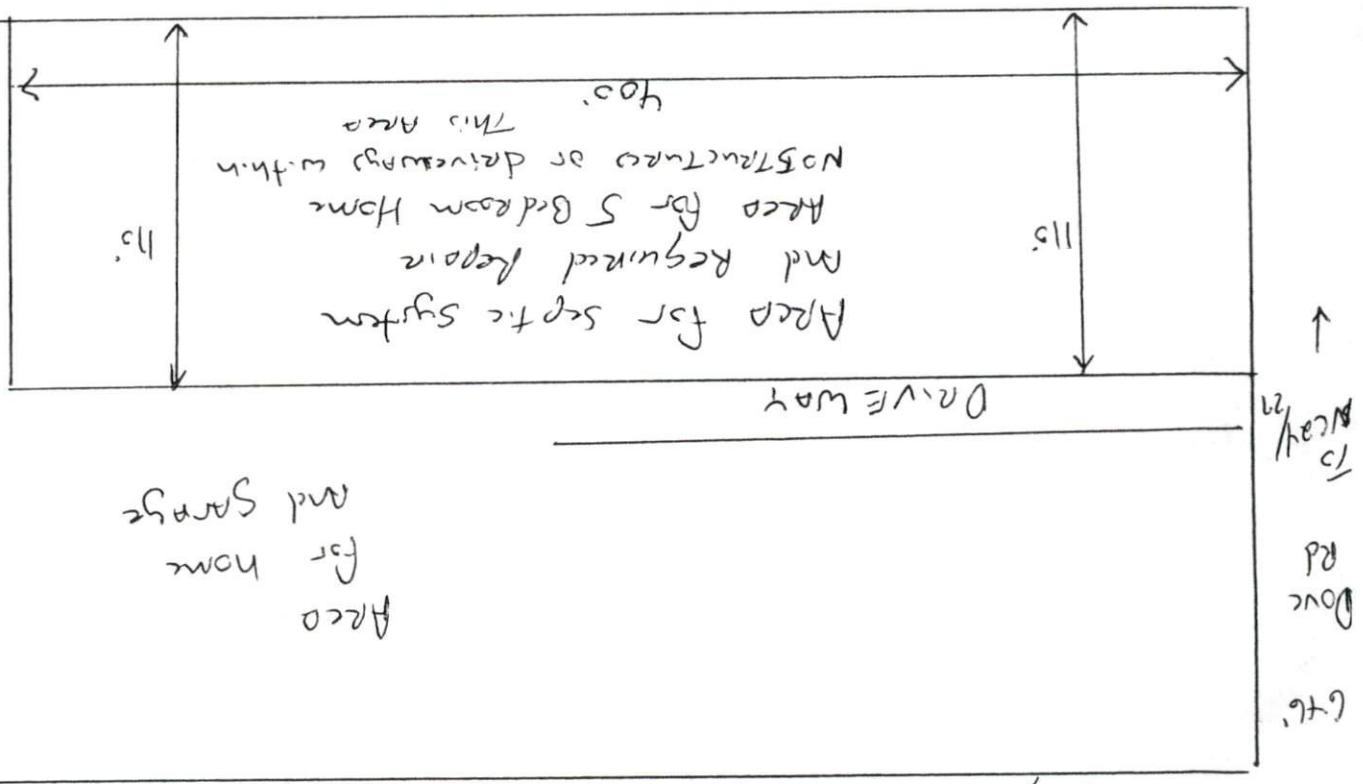 646'
Dove
Rd
To
NC24/27
Area
for home
and garage
DRIVEWAY
Area for septic system
And Required Repair
Area for 5 Bedroom Home
No Structures or driveways within
This Area
400'
115'
115'